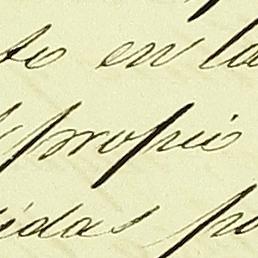 to en la
propio
idas po